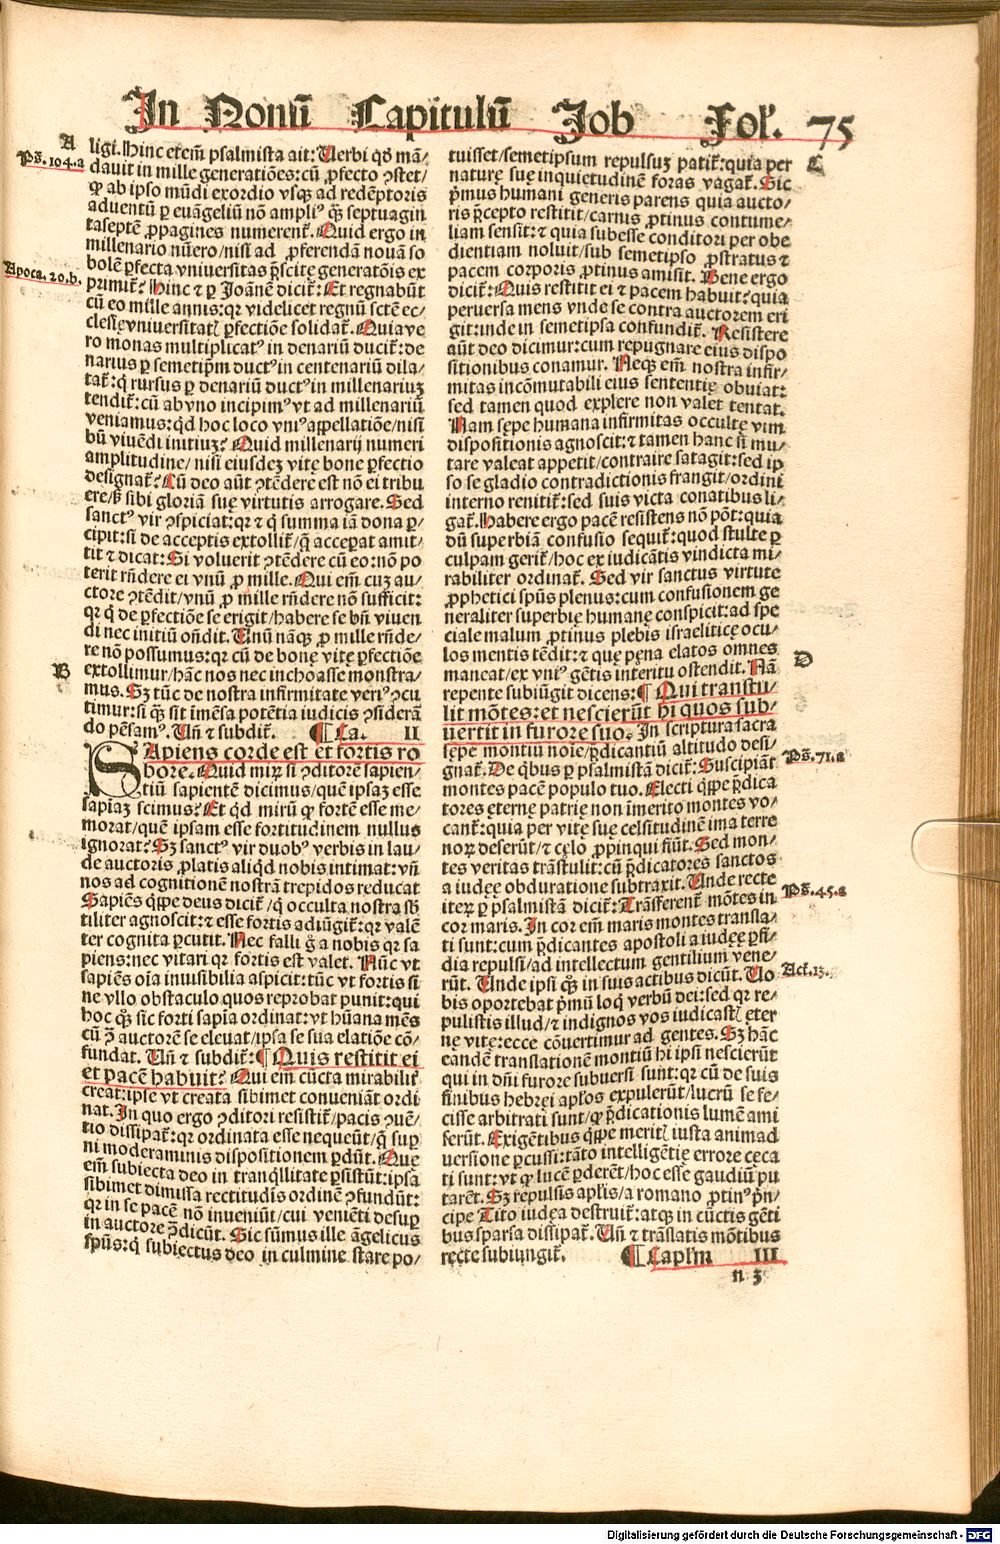 In Nonū Capitulū Job Fol'. 75
A
Ps. 104. a
Apoca. 20. b.
B
ligi. Hinc etem̄ psalmista ait: Verbi qd' mā/
dauit in mille generatiōes: cū ꝓfecto ꝯstet/
ꝙ ab ipso mūdi exordio vsqꝫ ad redēptoris
aduentū ꝑ euāgeliū nō ampliꝰ qꝫ septuagin
taseptē ꝓpagines numerent᷑. Quid ergo in
millenario nūero/nisi ad ꝓferendā nouā so
bolē ꝑfecta vniuersitas p̄scitę generatōis ex
primit᷑? Hinc ⁊ ꝑ Joānē dicit᷑: Et regnabūt
cū eo mille annis: qꝛ videlicet regnū sctē ec/
clesię vniuersitatꝭ ꝑfectiōe solidat᷑. Quia ve
ro monas multiplicatꝰ in denariū ducit᷑: de
narius ꝑ semetip̄m ductꝰ in centenariū dila/
tat᷑: q̇ rursus ꝑ denariū ductꝰ in millenariuꝫ
tendit᷑: cū ab vno incipimꝰ vt ad millenariū
veniamus: qd hoc loco vniꝰ appellatiōe/nisi
bn̄ viuēdi initiuꝫ? Quid millenarij numeri
amplitudine/ nisi eiusdeꝫ vitę bone ꝑfectio
designat᷑? Cū deo aūt ꝯtēdere est nō ei tribu
ere/ß sibi gloriā suę virtutis arrogare. Sed
sanctꝰ vir ꝯspiciat: qꝛ ⁊ q̇ summa iā dona ꝑ/
cipit: si de acceptis extollit᷑/q̄ acceꝑat amit/
tit ⁊ dicat: Si voluerit ꝯtēdere cū eo: nō po
terit rn̄dere ei vnū ꝓ mille. Qui em̄ cuꝫ au/
ctore ꝯtēdit/vnū ꝓ mille rn̄dere nō sufficit:
qꝛ q̇ de ꝑfectiōe se erigit/habere se bn̄ viuen
di nec initiū on̄dit. Unū nāqꝫ ꝓ mille rn̄de/
re nō possumus: qꝛ cū de bonę vitę ꝑfectiōe
extollimur/hāc nos nec inchoasse monstra/
mus. Sꝫ tūc de nostra infirmitate veriꝰ ꝯcu
timur: si qꝫ sit īmēsa potētia iudicis ꝯsiderā
do pēsamꝰ. Un̄ ⁊ subdit᷑. ¶Ca. II
SApiens corde est et fortis ro
bore. Quid miꝝ si ꝯditorē sapien/
tiū sapientē dicimus/quē ipsaꝫ esse
sapīaꝫ scimus? Et qd mirū ꝙ fortē esse me/
morat/quē ipsam esse fortitudinem nullus
ignorat? Sꝫ sanctꝰ vir duobꝰ verbis in lau/
de auctoris ꝓlatis aliqd nobis intimat: vn̄
nos ad cognitionē nostrā trepidos reducat
Sapiēs qꝑpe deus dicit᷑/q̇ occulta nostra sb̄
tiliter agnoscit: ⁊ esse fortis adiūgit᷑: qꝛ valē
ter cognita ꝑcutit. Nec falli g̊ a nobis qꝛ sa
piens: nec vitari qꝛ fortis est valet. Nūc vt
sapiēs oīa inuisibilia aspicit: tūc vt fortis si
ne vllo obstaculo quos reprobat punit: qui
hoc qꝫ sic forti sapīa ordinat: vt hūana mēs
cū ꝯ̄ auctorē se eleuat/ipsa se sua elatiōe cō/
fundat. Un̄ ⁊ subdit᷑: ¶Quis restitit ei
et pacē habuit? Qui em̄ cūcta mirabilit᷑
creat: ipse vt creata sibimet conueniāt ordi
nat. In quo ergo ꝯditori resistit᷑/pacis ꝯuē/
tio dissipat᷑: qꝛ ordinata esse nequeūt/q̄ suꝑ
ni moderaminis dispositionem ꝑdūt. Que
em̄ subiecta deo in tranqllitate ꝑsistūt: ipsa
sibimet dimissa rectitudis ordinē ꝯfundūt:
qꝛ in se pacē nō inueniūt/cui veniēti desuꝑ
in auctore ꝯ̄dicūt. Sic sūmus ille āgelicus
spūs: q̇ subiectus deo in culmine stare po/
tuisset/semetipsum repulsuꝫ patit᷑: quia per
naturę suę inquietudinē foras vagat᷑. Sic
p̄mus humani generis parens quia aucto/
ris p̄cepto restitit/carnis ꝓtinus contume/
liam sensit: ⁊ quia subesse conditori per obe
dientiam noluit/sub semetipso ꝓstratus ⁊
pacem corporis ꝓtinus amisit. Bene ergo
dicit᷑: Quis restitit ei ⁊ pacem habuit? quia
peruersa mens vnde se contra auctorem eri
git: inde in semetipsa confundit᷑. Resistere
aūt deo dicimur: cum repugnare eius dispo
sitionibus conamur. Neqꝫ em̄ nostra infir/
mitas incōmutabili eius sententię obuiat:
sed tamen quod explere non valet tentat.
Nam sępe humana infirmitas occultę vim
dispositionis agnoscit: ⁊ tamen hanc si mu/
tare valeat appetit/contraire satagit: sed ip
so se gladio contradictionis frangit/ordini
interno renitit᷑: sed suis victa conatibus li/
gat᷑. Habere ergo pacē resistens nō pōt: quia
dū superbiā confusio sequit᷑: quod stulte ꝑ
culpam gerit᷑/hoc ex iudicātis vindicta mi/
rabiliter ordinat᷑. Sed vir sanctus virtute
ꝓphetici spūs plenus: cum confusionem ge
neraliter superbię humanę conspicit: ad spe
ciale malum ꝓtinus plebis israeliticę ocu/
los mentis tēdit: ⁊ quę pęna elatos omnes
maneat/ex vniꝰ gētis interitu ostendit. Nā
repente subiūgit dicens: ¶ Qui transtu/
lit mōtes: et nescierūt hi quos sub/
uertit in furore suo. In scriptura sacra
sępe montiū noīe/p̄dicantiū altitudo desi/
gnat᷑. De qbus ꝑ psalmistā dicit᷑: Suscipiāt
montes pacē populo tuo. Electi qꝑpe p̄dica
tores ęternę patrię non īmerito montes vo/
cant᷑: quia per vitę suę celsitudinē ima terre
noꝝ deserūt/⁊ cęlo ꝓpinqui fiūt. Sed mon/
tes veritas trāstulit: cū p̄dicatores sanctos
a iudęę obduratione subtraxit. Unde recte
iteꝝ ꝑ psalmistā dicit᷑: Trāsferent᷑ mōtes in
cor maris. In cor em̄ maris montes transla/
ti sunt: cum p̄dicantes apostoli a iudęę ꝑfi/
dia repulsi/ad intellectum gentilium vene/
rūt. Unde ipsi qꝫ in suis actibus dicūt. Uo
bis oportebat p̄mū loq̇ verbū dei: sed qꝛ re/
pulistis illud/⁊ indignos vos iudicastꝭ ęter
nę vitę: ecce cōuertimur ad gentes. Sꝫ hāc
eandē translationē montiū hi ipsi nescierūt
qui in dn̄i furore subuersi sunt: qꝛ cū de suis
finibus hebręi ap̄los expulerūt/lucrū se fe/
cisse arbitrati sunt/ꝙ p̄dicationis lumē ami
ferūt. Exigētibus qꝑpe meritꝭ iusta animad
uersione ꝑcussi: tāto intelligētię errore cęca
ti sunt: vt ꝙ lucē ꝑderēt/hoc esse gaudiū pu
tarēt. Sꝫ repulsis ap̄lis/a romano ꝓtinꝰ p̄n/
cipe Tito iudęa destruit᷑: atqꝫ in cūctis gēti
bus sparsa dissipat᷑. Un̄ ⁊ trāslatis mōtibus
recte subiungit᷑. ¶Caplm III
n 3
C
D
Ps. 71. a
Ps. 45. a
Act. 13.
Digitalisierung gefördert durch die Deutsche Forschungsgemeinschaft - DFG